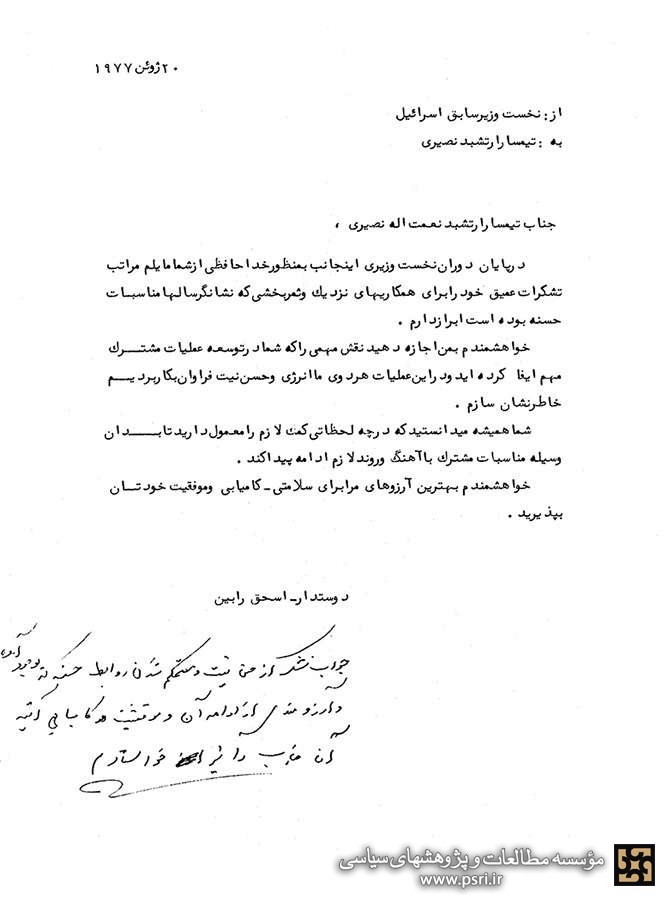 ۲۰ ژوئن ۱۹۷۷
از : نخست وزیر سابق اسرائیل
به : تیمسار ارتشبد نصیری
جناب تیمسار ارتشبد نعمت اله نصیری ،
در پایان دوران نخست وزیری اینجانب بمنظور خداحافظی از شما مایلم مراتب
تشکرات عمیق خود را برای همکاریهای نزدیك وثمربخشی که نشانگر سالها مناسبات
حسنه بوده است ابراز دارم .
خواهشمندم بمن اجازه دهید نقش مهمی را که شما در توسعه عملیات مشترك
مهم ایفا کرده اید ودر این عملیات هردوی ما انرژی وحسن نیت فراوان بکار بردیم
خاطرنشان سازم .
شما همیشه میدانستید که در چه لحظاتی کمك لازم را معمول دارید تا بدان
وسیله مناسبات مشترك با آهنگ وروند لازم ادامه پیدا کند .
خواهشمندم بهترین آرزوهای مرا برای سلامتی ـ کامیابی وموفقیت خودتان
بپذیرید .
دوستدار ـ اسحق رابین
جواب تشکر از حسن نیت و مستحکم شدن روابط حسنه که بوجود آمده
و آرزومندی از ادامه آن و موفقیت و کامیابی آتیه
آن جناب را نیز خواستارم
مؤسسه مطالعات و پژوهشهای سیاسی
www.psri.ir